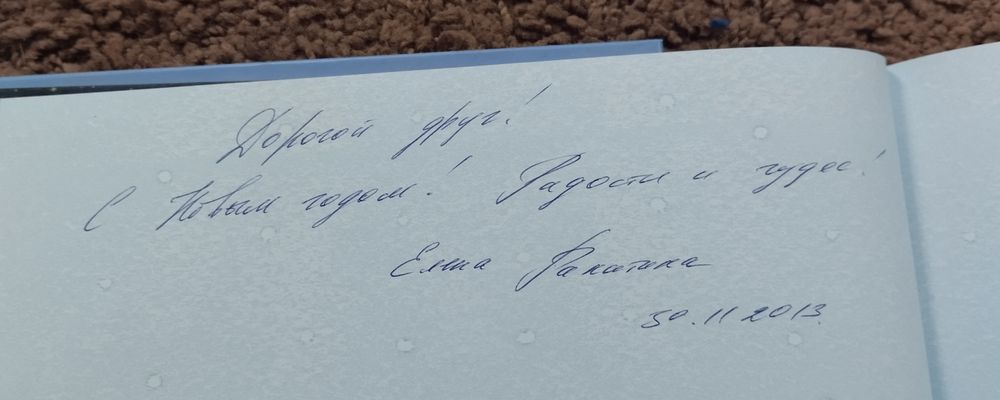 Дорогой друг!
С Новым годом! Радости и чудес!
Елена Ракитина
30.11 2013